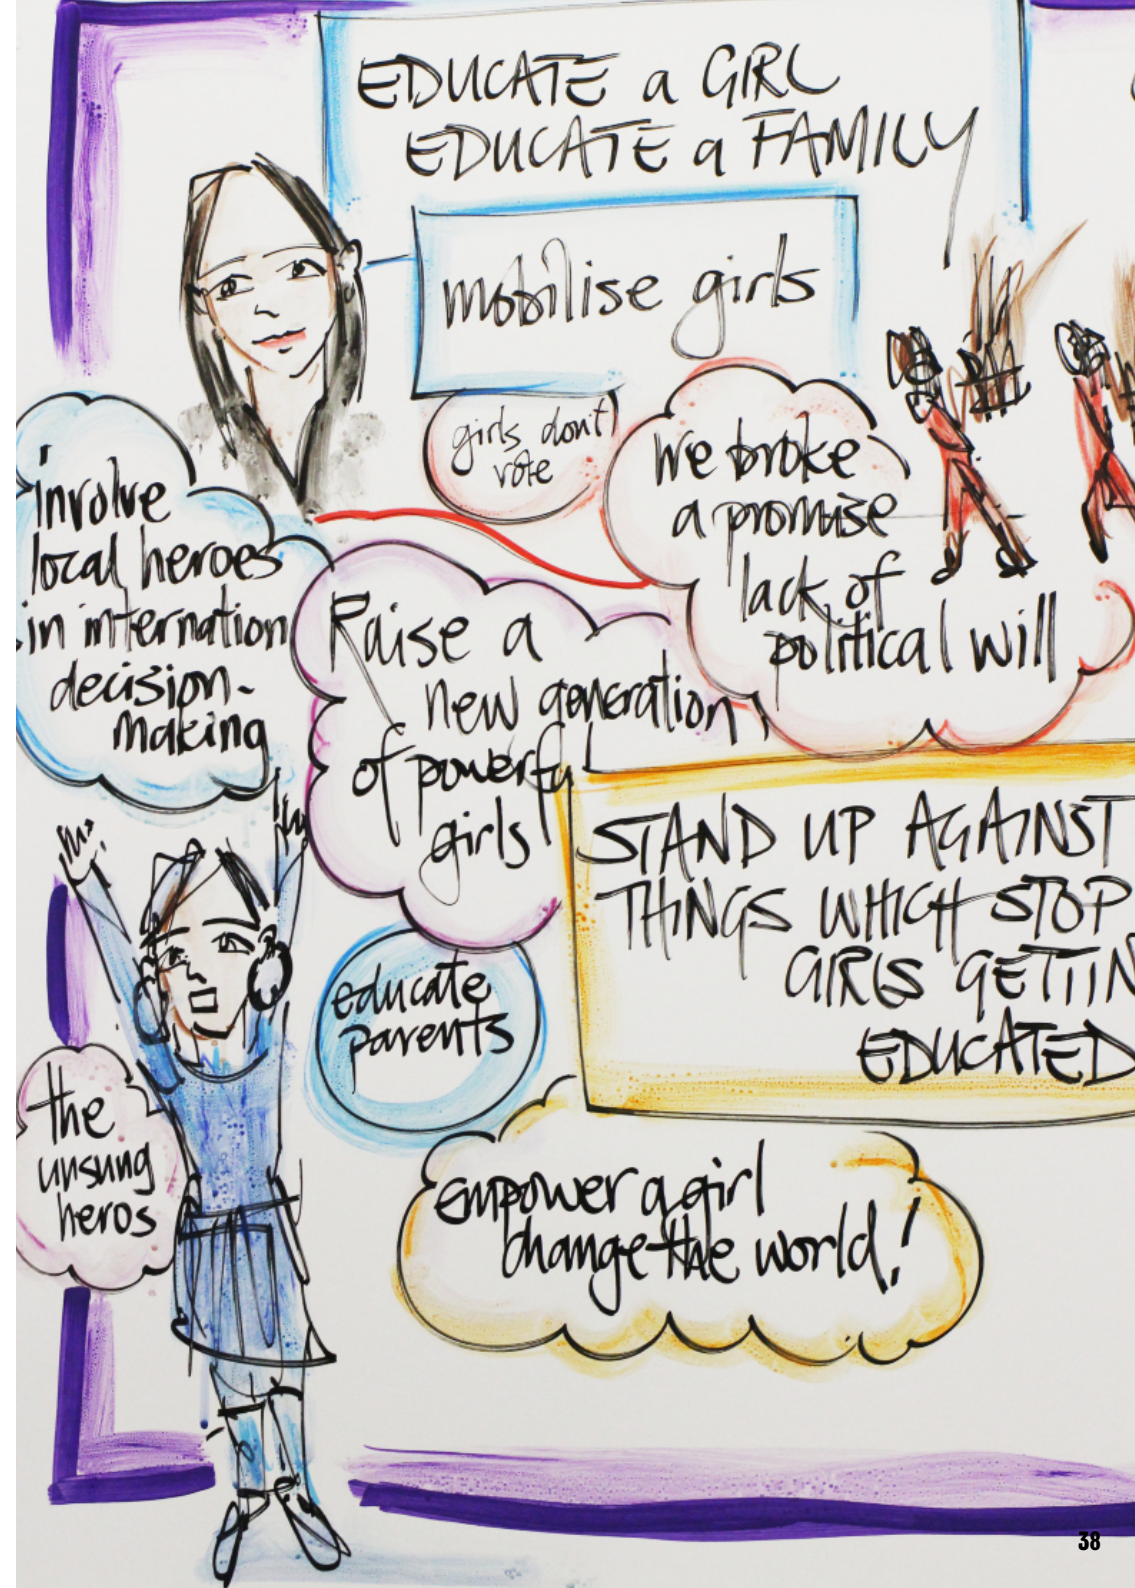 EDUCATE a GIRL
EDUCATE a FAMILY
mobilise girls
girls don't
vote
We broke
a promise
lack of
political will
involve
local heroes
in internation
decision-
making
Raise a
new generation
of powerful
girls
STAND UP AGAINST
THINGS WHICH STOP
GIRLS GETTIN
EDUCATED
educate
parents
the
unsung
heros
empower a girl
change the world!
38